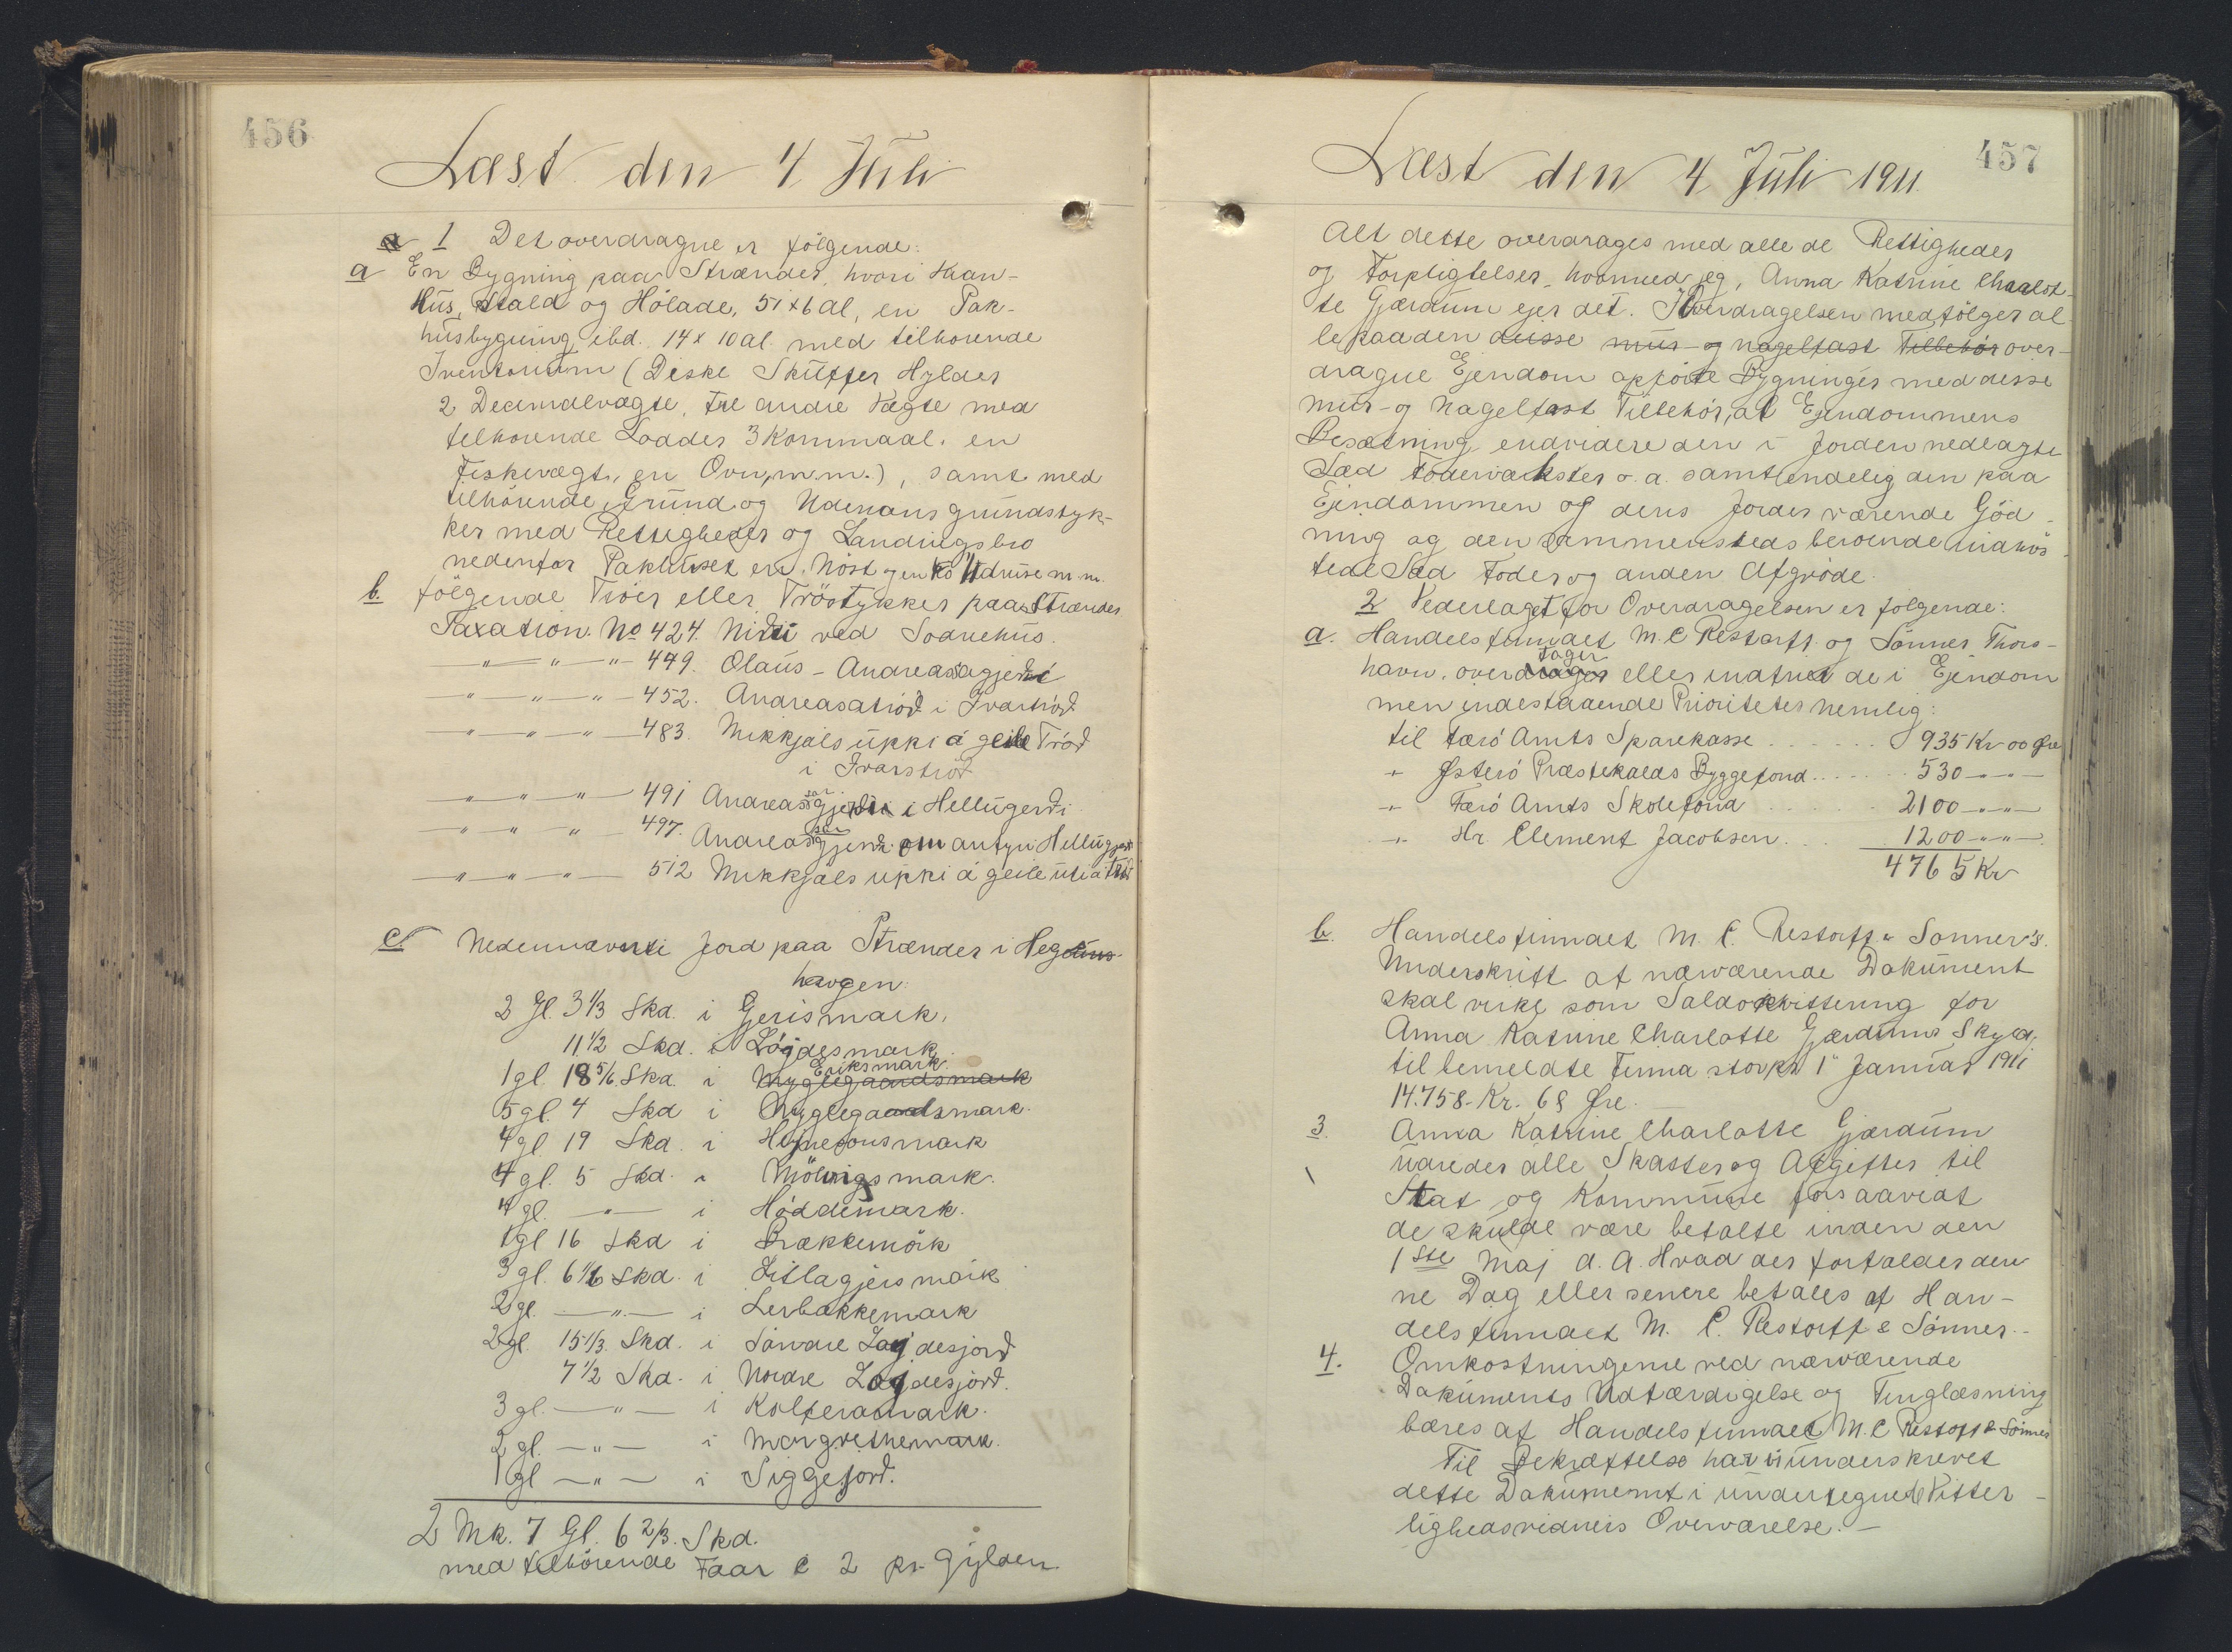 456
Læst den 4 Juli
1 Det overdragne er følgende:
a En Bygning paa Strænder, hvori Han-
Hus, Stald og Hölade, 51 x 6 al, en Pak-
husbygning ibd. 14 x 10 al. med tilhorende
Iventorium (Diske Skuffer Hylder
2 Decimalvægte, tre andre Vægte med
telhorende Lodder 3 Kornmaal. en
Fiskevægt, en Ovn, m.m.), samt med
tilhörende Grund og Udenomsgrundstyk-
ker med Rettigheder og Landingsbro
nedenfor Pakhuset en Nöst og en m.m.
b. fölgende Tröer eller Tröstykker paa Strænder
Taxation No 424. ved Sodnehus.
" " " 449. Olaus-Andreasagjerdi
" " " 452. Andreasatröð i Ivartröð
" " " 483. Mikkjals uppi á geile Tröð
i Ivarströð
" " " 491 Andreasar gjerði i Hellugerði
" " " 497. Andreasar gjerði om antyri
" " " 512 Mikkjals uppi á geile uti á Tröð
c. Nedennævnte Jord paa Strænder i
haugen:
2 Gl. 3 1/3 Skd. i Gerismark.
11 1/2 Skd. i Lögdesmark
1 gl. 18 5/6 Skd. i Myglegaardsmark Eriksmark.
5 gl. 4 Skd i Myglegaardsmark.
4 gl 19 Skd. i Hejnesonsmark
4 gl. 5 Skd. " Mölungsmark.
4 gl. " i Höddemark.
1 gl 16 Skd i Brækkemörk
3 gl. 6 1/6 Skd. i Litlagjersmark
2 gl. " i Lerbakkemark
2 gl. 15 1/3 Skd. i Söndre Lögdesjord
7 1/2 Skd. i Nordre Lögdesjord.
3 gl. " i Kolteramark.
2 gl. " i Margrethemark.
1 gl " i Siggejord.
2 Mk. 7 Gl. 6 2/3. Skd.
med tilhörende Faar c 2 pr. Gylden.
457
Læst den 4 Juli 1911.
Alt dette overdrages med alle de Rettigheder
og Forpligtelser, hvormed jeg, Anna Katrine Charlot-
te Gjærdum ejer det. I Overdragelsen medfølger al-
le paa den disse mur- og nagelfast Tilbehör over-
dragne Ejendom opförte Bygninger med disse
mur- og Nagelfast Tilbehör, al Ejendommens
Besætning, endvidere den i Jorden nedlagte
Sæd Födevækster o. a. samt endelig den paa
Ejendommen og dens Jorder værende Gjöd-
ning og den sammensteds beroende indhös-
tede Sæd Foder og anden Afgröde.
2 Vederlaget for Overdragelsen er følgende:
a. Handelsfirmaet M. C Restorff og Sönner Thors-
havn, overdrager tager eller indfrier de i Ejendom
men indestaaende Prioriteter nemlig:
til Færö Amts Sparekasse . . . . . . 935 Kr 00 Øre
" Østerö Præstekalds Byggefond . . . . . 530 " "
" Færö Amts Skolefond . . . . . 2100 " "
" Hr Clement Jacobsen . . . 1200 " "
4765 Kr
b. Handelsfirmaet M. C. Restorff & Sonner's.
Underskrift af nærværende Dokument
skal virke som Saldokvittering for
Anna Katrine Charlotte Gjærdums Skyld,
til bemeldte Firma stor pr 1" Januar 1911
14.758- Kr. 68 Øre.
3. Anna Katrine Charlotte Gjærdum
udreder alle Skatter og Afgifter til
Stat og Kommune forsaavidt
de skulde være betalte inden den
1ste Maj d. A. Hvad der forfalder den-
ne Dag eller senere betales af Han-
delsfirmaet M. C. Restorff & Sönner.-
4. Omkostningerne ved nærværende
Dokuments Udfærdigelse og Tinglæsning
bæres af Handelsfirmaet M. C Restorff & Sönner
Til Bekræftelse har vi underskrevet
dette Dokument i undertegnede Vitter-
lighedsvidneis Overværelse.-